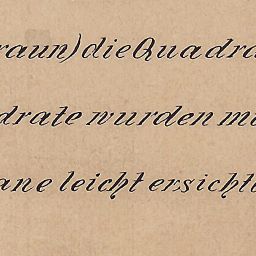 raun) die Quadra
drate wurden mi
ane leicht ersichtl